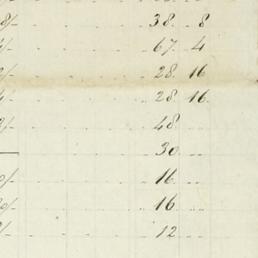 8/- 38. 8
/- 67. 4
/- 28. 16
/- 28. 16.
/- 48
30
0/- 16
0/- 16
/- 12